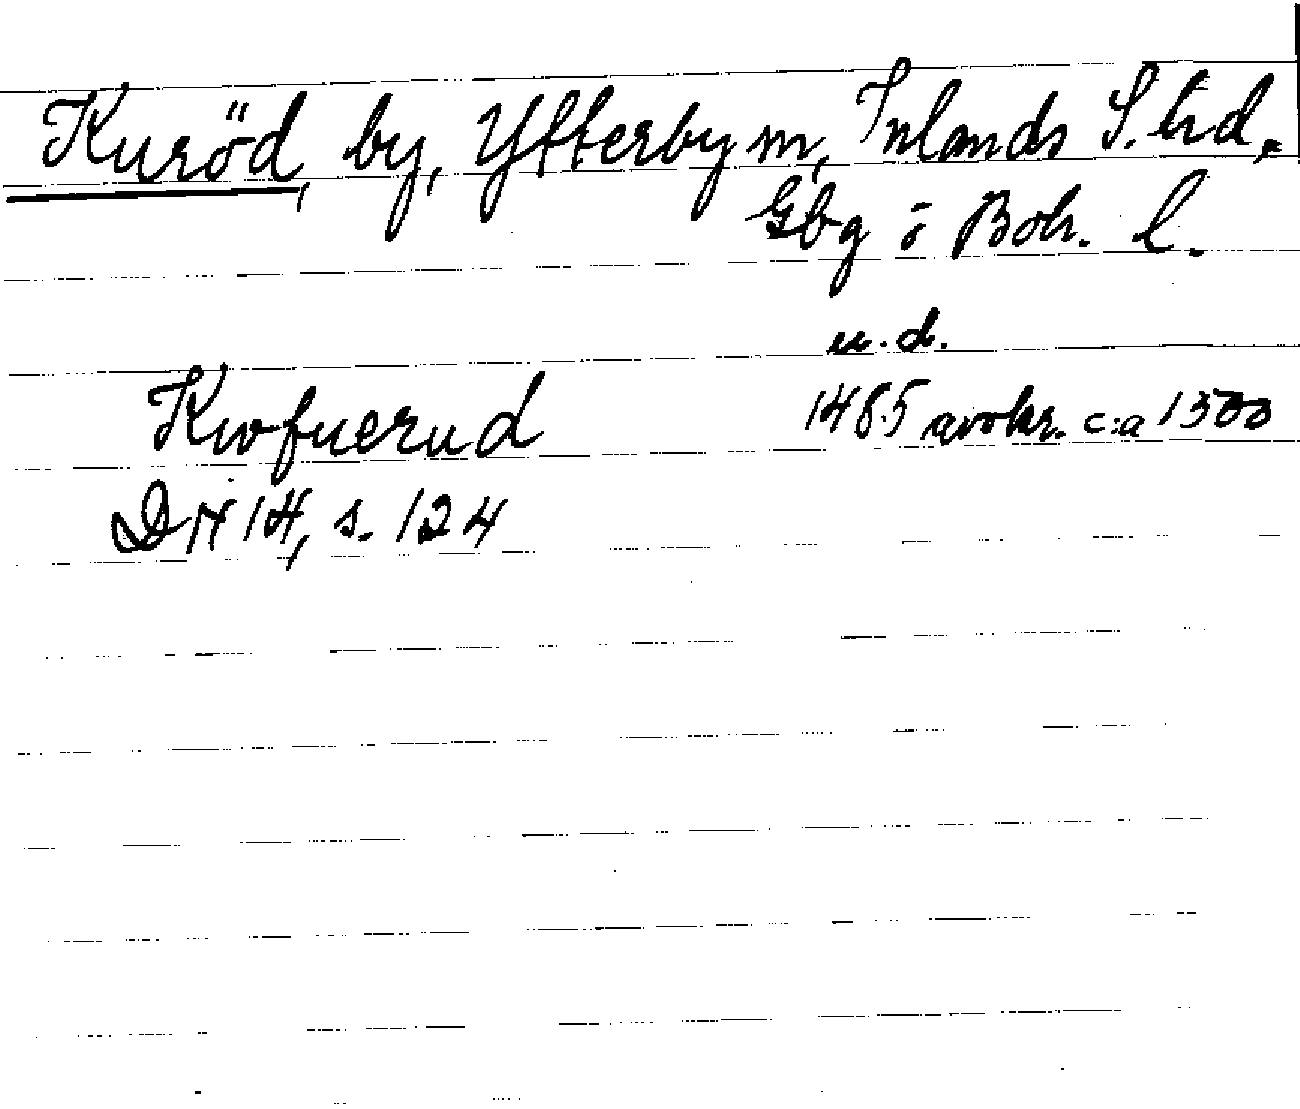 Kuröd, by, Ytterby sn, Inlands S. hd.
Gbg o Boh. l.
u. d.
Kwfuerud 1485 avskr. c:a 1500
DN 14, s. 124